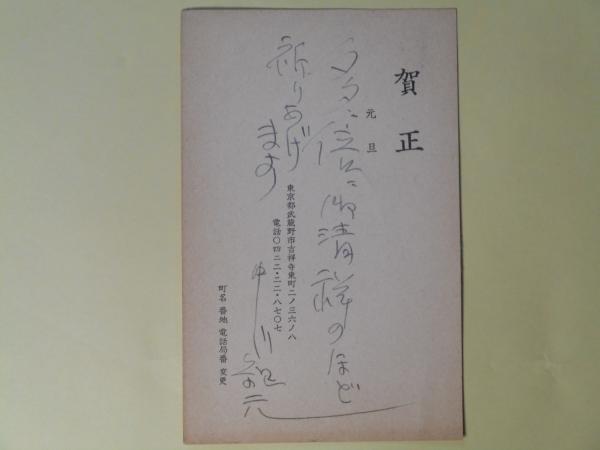 賀正
元旦
御清祥のほど
祈りあげ
ます
東京都武蔵野市吉祥寺東町二ノ三六ノ八
電話〇四二二・二二・八七〇七
中川
町名 番地 電話局番 変更